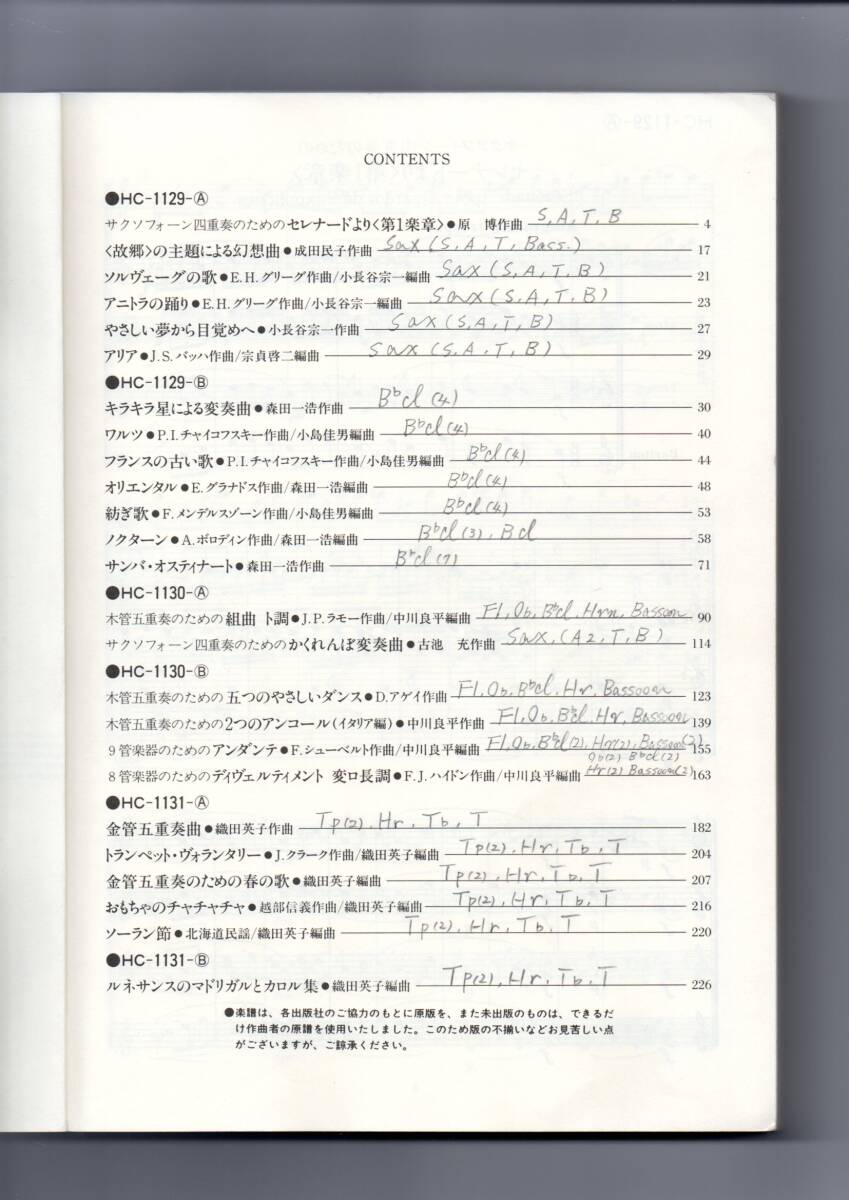 CONTENTS
●HC-1129-Ⓐ
サクソフォーン四重奏のためのセレナードより〈第1楽章〉●原 博作曲 S, A, T, B 4
〈故郷〉の主題による幻想曲●成田民子作曲 Sax (S, A, T, Bass.) 17
ソルヴェーグの歌●E.H.グリーグ作曲/小長谷宗一編曲 Sax (S, A, T, B) 21
アニトラの踊り●E.H.グリーグ作曲/小長谷宗一編曲 Sax (S, A, T, B) 23
やさしい夢から目覚めへ●小長谷宗一作曲 Sax (S, A, T, B) 27
アリア●J.S.バッハ作曲/宗貞啓二編曲 Sax (S, A, T, B) 29
●HC-1129-Ⓑ
キラキラ星による変奏曲●森田一浩作曲 B♭cl (4) 30
ワルツ●P.I.チャイコフスキー作曲/小島佳男編曲 B♭cl (4) 40
フランスの古い歌●P.I.チャイコフスキー作曲/小島佳男編曲 B♭cl (4) 44
オリエンタル●E.グラナドス作曲/森田一浩編曲 B♭cl (4) 48
紡ぎ歌●F.メンデルスゾーン作曲/小島佳男編曲 B♭cl (4) 53
ノクターン●A.ボロディン作曲/森田一浩編曲 B♭cl (3), Bcl 58
サンバ・オスティナート●森田一浩作曲 B♭cl (7) 71
●HC-1130-Ⓐ
木管五重奏のための組曲 ト調●J.P.ラモー作曲/中川良平編曲 Fl, Ob, B♭cl, Hrn, Bassoon 90
サクソフォーン四重奏のためのかくれんぼ変奏曲●古池 充作曲 Sax, (A2, T, B) 114
●HC-1130-Ⓑ
木管五重奏のための五つのやさしいダンス●D.アゲイ作曲 Fl, Ob, B♭cl, Hr, Bassoon 123
木管五重奏のための2つのアンコール(イタリア編)●中川良平作曲 Fl, Ob, B♭cl, Hr, Bassoon 139
9管楽器のためのアンダンテ●F.シューベルト作曲/中川良平編曲 Fl, Ob, B♭cl(2), Hrn(2), Bassoon(2) 155
Ob(2) B♭cl(2)
8管楽器のためのディヴェルティメント 変ロ長調●F.J.ハイドン作曲/中川良平編曲 Hr(2) Bassoon(2) 163
●HC-1131-Ⓐ
金管五重奏曲●織田英子作曲 Tp(2), Hr, Tb, T 182
トランペット・ヴォランタリー●J.クラーク作曲/織田英子編曲 Tp(2), Hr, Tb, T 204
金管五重奏のための春の歌●織田英子編曲 Tp(2), Hr, Tb, T 207
おもちゃのチャチャチャ●越部信義作曲/織田英子編曲 Tp(2), Hr, Tb, T 216
ソーラン節●北海道民謡/織田英子編曲 Tp(2), Hr, Tb, T 220
●HC-1131-Ⓑ
ルネサンスのマドリガルとカロル集●織田英子編曲 Tp(2), Hr, Tb, T 226
●楽譜は、各出版社のご協力のもとに原版を、また未出版のものは、できるだ
け作曲者の原譜を使用いたしました。このため版の不揃いなどお見苦しい点
がございますが、ご諒承ください。